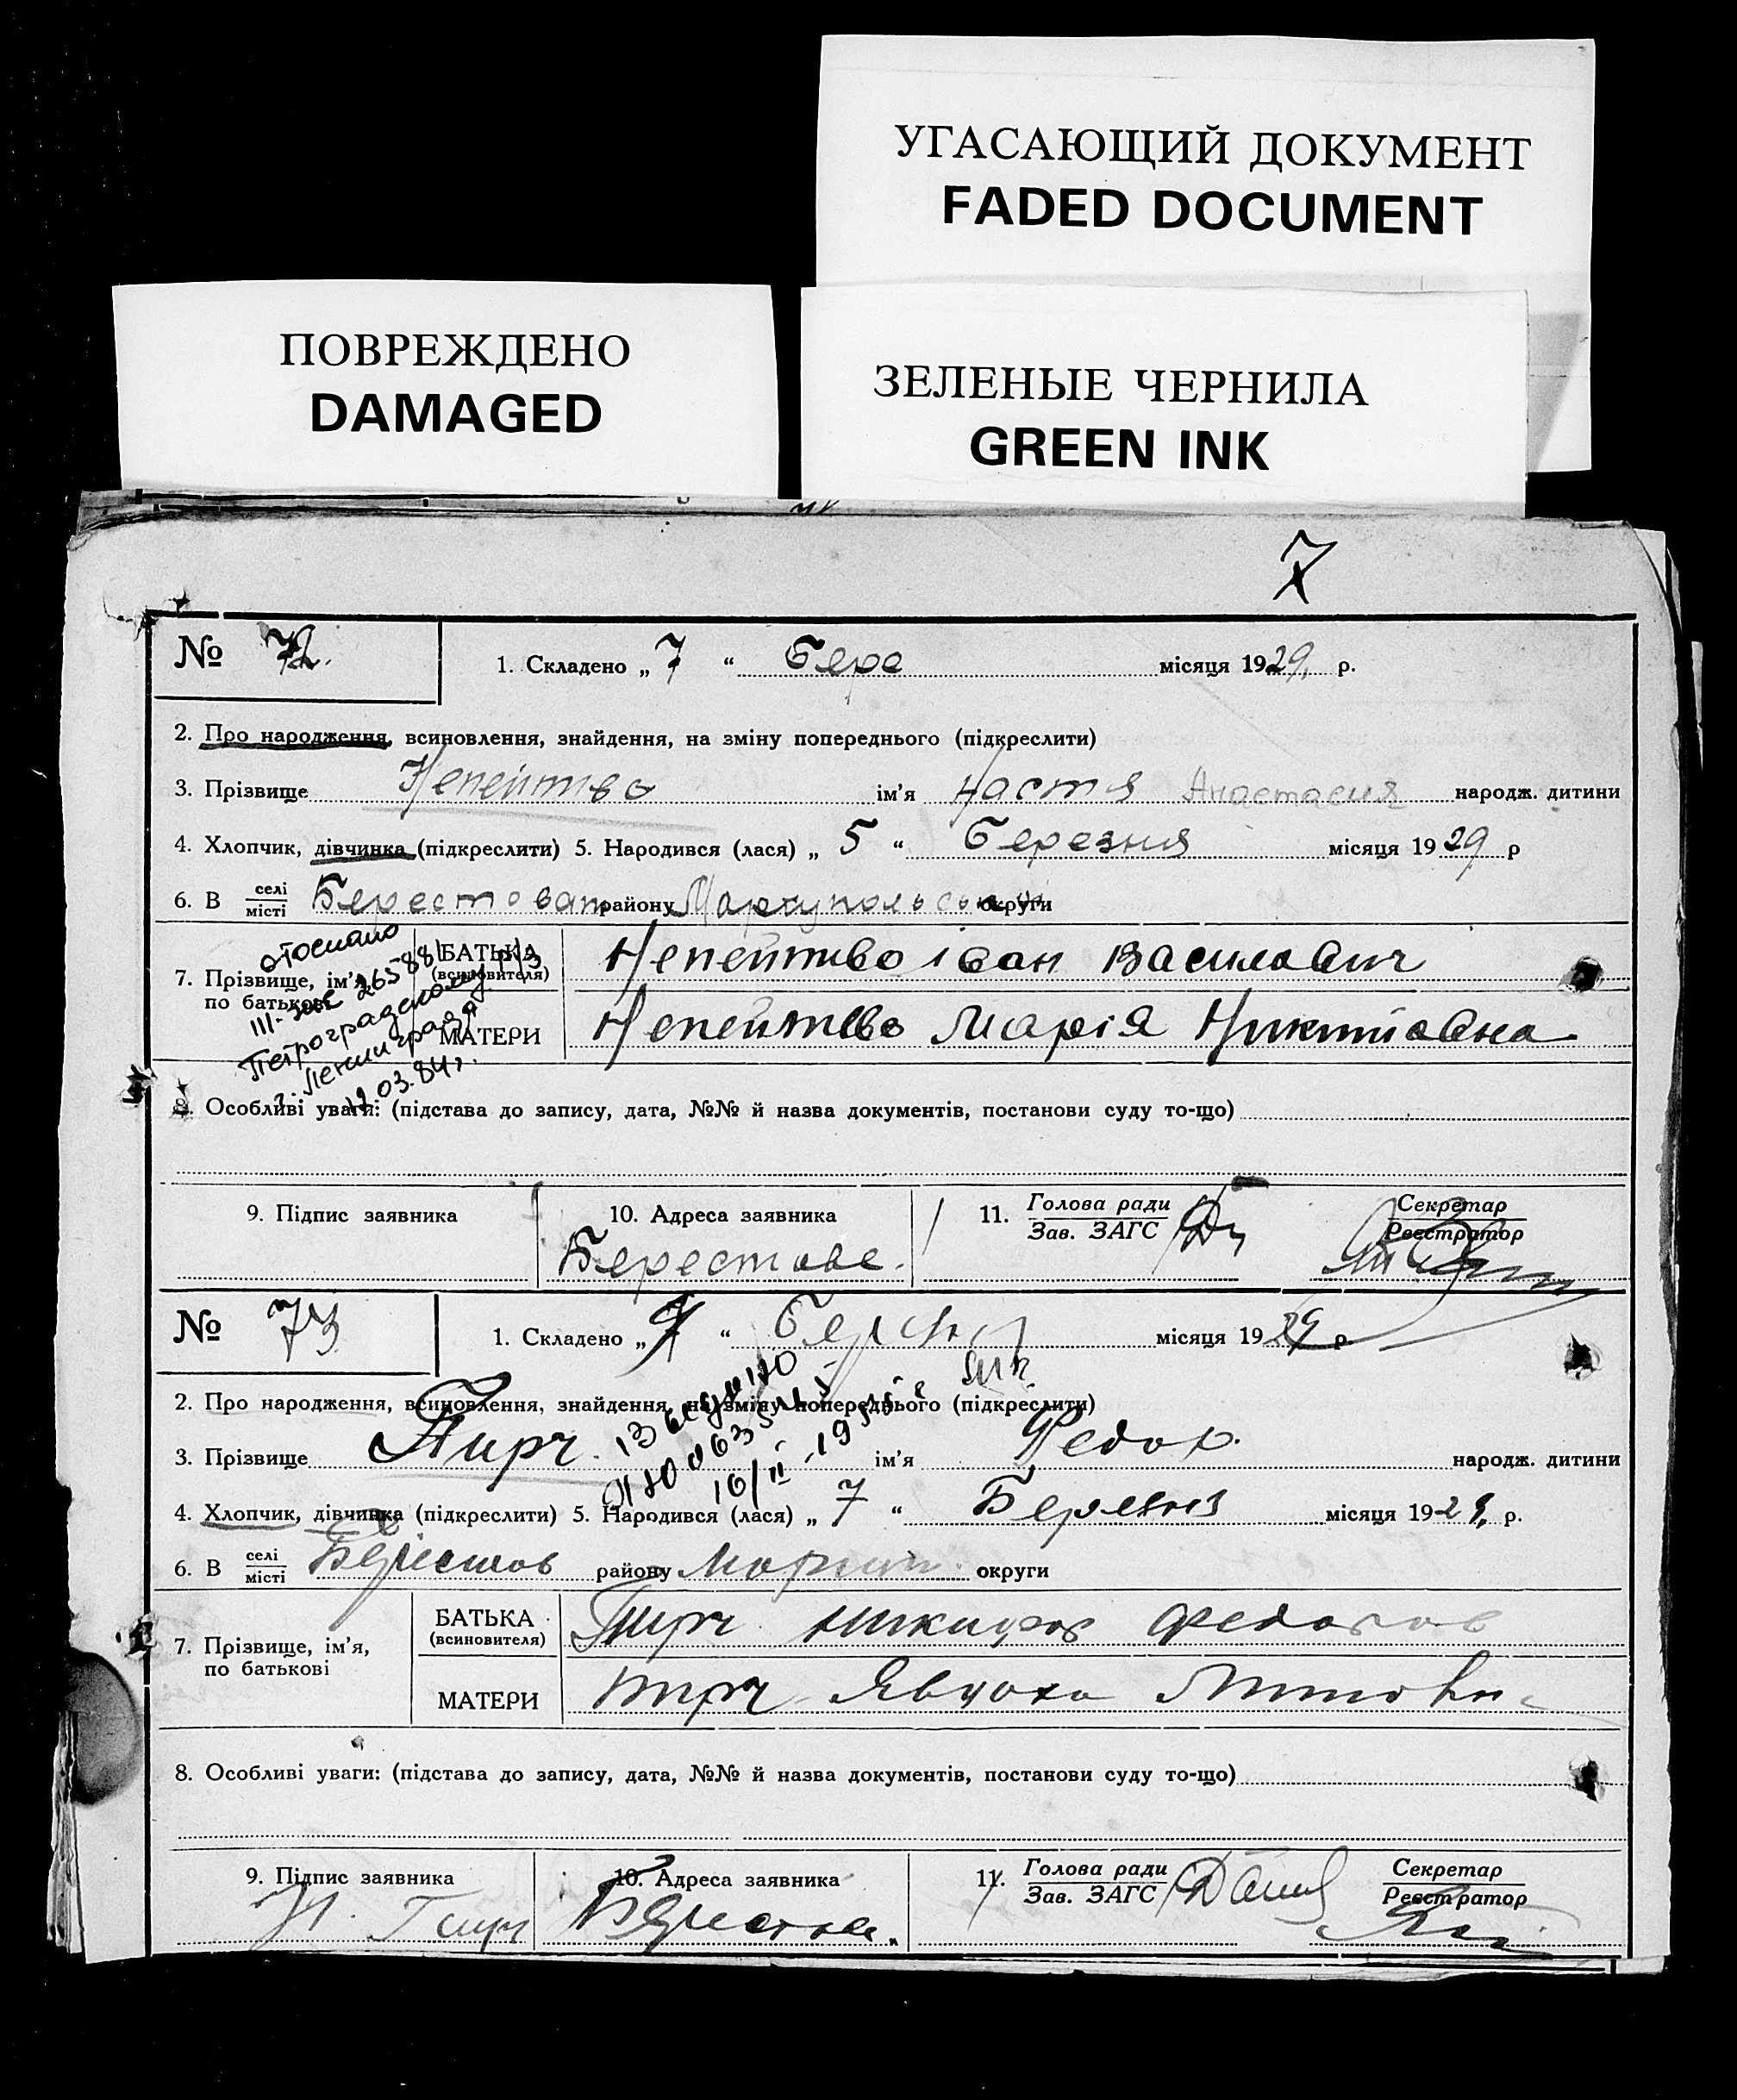 УГАСАЮЩИЙ ДОКУМЕНТ
FADED DOCUMENT
ПОВРЕЖДЕНО
DAMAGED
ЗЕЛЕНЫЕ ЧЕРНИЛА
GREEN INK
7
№ 72. 1. Складено „ 7 “ Бере місяця 1929. р.
2. Про народження, всиновлення, знайдення, на зміну попереднього (підкреслити)
3. Прізвище Непейтиво ім’я Настя Анастасия народж. дитини
4. Хлопчик, дівчинка (підкреслити) 5. Народився (лася) „ 5 “ Березня місяця 1929 р
6. В селі місті Берестоват району округи
7. Прізвище, ім’я по батькові БАТЬКА (всиновителя) Непейтиво Іван Василович
МАТЕРИ Непейтиво Марія Никитовна
отослано
III- 265881
Петроградскому р/з
г. Ленинграда
12.03.84г.
8. Особливі уваги: (підстава до запису, дата, №№ й назва документів, постанови суду то-що)
9. Підпис заявника 10. Адреса заявника 11. Голова ради Зав. ЗАГС Секретар Реєстратор
Берестове.
№ 73 1. Складено „ 7 “ місяця 1929 р.
2. Про народження, всиновлення, знайдення, на зміну попереднього (підкреслити)
3. Прізвище Пирч ім’я Федор. народж. дитини
4. Хлопчик, дівчинка (підкреслити) 5. Народився (лася) „ 7 “ Березня місяця 1929, р.
6. В селі місті Берестов району Мариуп. округи
7. Прізвище, ім’я, по батькові БАТЬКА (всиновителя) Пирч Федоров
МАТЕРИ Пирч Явдоха
8. Особливі уваги: (підстава до запису, дата, №№ й назва документів, постанови суду то-що)
9. Підпис заявника 10. Адреса заявника 11. Голова ради Зав. ЗАГС Секретар Реєстратор
Берестове.